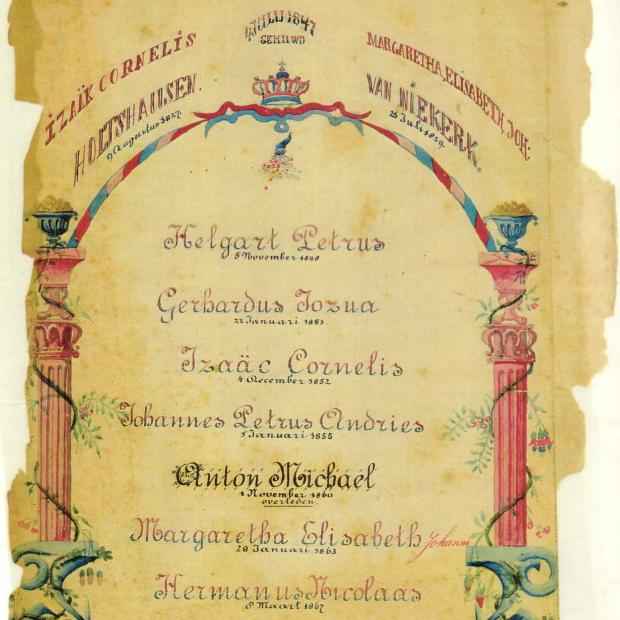 IZAÏK CORNELIS
HOLTSHAUSEN.
9 Augustus 1827.
JULIJ 1847
GEHUWD
MARGARETHA, ELISABETH, JOH:
VAN NIEKERK.
Juli, 1829.
Helgart Petrus
November 1849
Gerhardus Jozua
22 Januari 1851.
Izaäc Cornelis
4 December 1852
Johannes Petrus Andries
5 Januari 1855
Anton Michaël
1 November 1860
overleden.
Margaretha Elisabeth Johanna
28 Januari 1863
Hermanus Nicolaas
8 Maart 1867